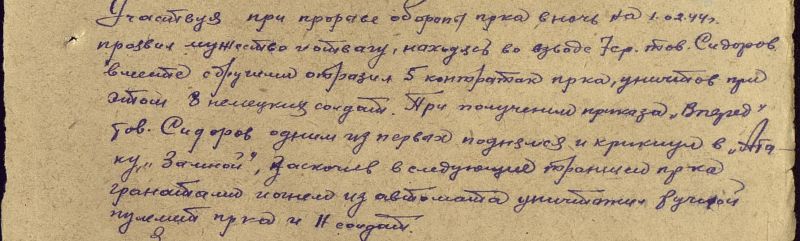 Участвуя при прорыве обороны пр-ка в ночь на 1.02.44г.
проявил мужество и отвагу, находясь во взводе 7ср. тов. Сидоров
вместе с другими отразил 5 контратак пр-ка, уничтожив при
этом 8 немецких солдат. При получении приказа „Вперед"
тов. Сидоров одним из первых поднялся и крикнул в „Ата-
ку," „За мной", заскочив в следующие траншеи пр-ка
гранатами и огнем из автомата уничтожил ручной
пулемет пр-ка и 11 солдат.